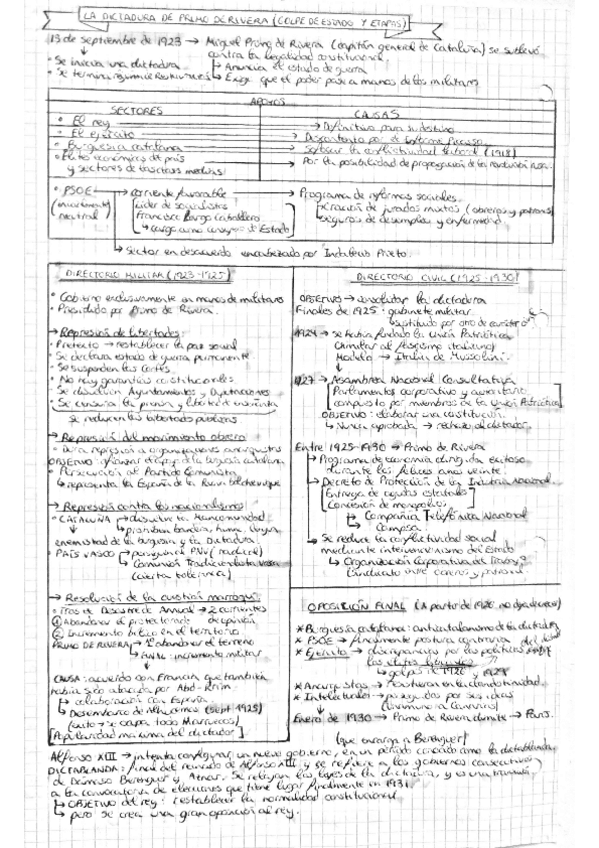 LA DICTADURA DE PRIMO DE RIVERA (GOLPE DE ESTADO Y ETAPAS)
13 de septiembre de 1923 → Miguel Primo de Rivera (capitán general de Cataluña) se sublevó
contra la legalidad constitucional.
• Se inicia una dictadura
→ Anuncia el estado de guerra
• Se termina régimen Restauración
→ Exige que el poder pase a manos de los militares
APOYOS
SECTORES
CAUSAS
• El rey → Definitivo para su destino
• El ejército → Descontento por el Informe Picasso
• Burguesía catalana → Sofocar la conflictividad laboral (1918)
• Élites económicas del país
y sectores de las clases medias
→ Por la posibilidad de propagación de la revolución rusa.
• PSOE → corriente favorable → Programa de reformas sociales
neutral
líder de socialistas
Francisco Largo Caballero
→ cargo como consejero de Estado
creación de jurados mixtos (obreros y patronos)
seguros de desempleo y enfermedad
→ Sector en desacuerdo encabezado por Indalecio Prieto.
DIRECTORIO MILITAR (1923-1925)
• Gobierno exclusivamente en manos de militares
• Presidido por Primo de Rivera.
→ Represión de libertades:
• Pretexto → restablecer la paz social
• Se declara estado de guerra permanente
• Se suspenden las Cortes
• No hay garantías constitucionales
• Se disuelven Ayuntamientos y Diputaciones
• Se censura la prensa y libertad
Se reducen las libertades públicas
→ Represión del movimiento obrero
• Dura represión a organizaciones anarquistas
OBJETIVO: apoyo de la burguesía catalana
• Persecución al Partido Comunista
→ representa la España de la Rusia bolchevique
→ Represión contra los nacionalismos
• CATALUÑA → disuelve la Mancomunidad
→ prohíben bandera, himno, lengua
enemistad de la burguesía y la Dictadura
• PAÍS VASCO → persiguen al PNV
→ Comunión Tradicionalista vasca
(cierta tolerancia)
→ Resolución de la cuestión marroquí
• Tras el Desastre de Annual → 2 corrientes
de opinión
① Abandonar el protectorado
② Incremento bélico en el territorio
PRIMO DE RIVERA → 1º abandonar el terreno
→ FINAL: incremento militar
CAUSA: acuerdo con Francia que también
había sido atacada por Abd-Krim.
↳ colaboración con España
→ Desembarco de Alhucemas (sept 1925)
(éxito → ocupa todo Marruecos)
[Popularidad máxima del dictador]
DIRECTORIO CIVIL (1925-1930)
OBJETIVO → consolidar la dictadura
Finales de 1925: gabinete militar
→ sustituido por otro de carácter
1924 → se había fundado la Unión Patriótica
(similar al fascismo italiano)
Modelo → Italia de Mussolini
1927 → Asamblea Nacional Consultativa
Parlamento corporativo y autoritario
compuesto por miembros de la Unión Patriótica
OBJETIVO: elaborar una constitución.
↳ Nunca aprobada → rechazo al dictador.
Entre 1925-1930 → Primo de Rivera
→ Programa de economía dirigida exitoso
durante los felices años veinte.
→ Decreto de Protección de la Industria Nacional.
Entrega de ayudas estatales
Concesión de monopolios
→ Compañía Telefónica Nacional
→ Campsa.
→ Se reduce la conflictividad social
mediante intervencionismo del Estado
→ Organización Corporativa del Trabajo
(sindicato entre obreros y patronos)
OPOSICIÓN FINAL (A partir de 1926 no deja de crecer)
* Burguesía catalana: anticatalanismo de la dictadura
* PSOE → finalmente postura contraria
* Ejército → discrepancias por las políticas
→ golpes de 1926 y 1929
* Anarquistas → Resistieron en la clandestinidad
* Intelectuales → perseguidos por sus ideas
(Unamuno a Canarias)
Enero de 1930 → Primo de Rivera dimite → París.
(que encarga a Berenguer)
Alfonso XIII → intenta configurar un nuevo gobierno, en un período conocido como la dictablanda
DICTABLANDA: final del reinado de Alfonso XIII y se refiere a los gobiernos consecutivos
de Dámaso Berenguer y Aznar. Se relajan las leyes de la dictadura, y es una transición
a la convocatoria de elecciones que tiene lugar finalmente en 1931.
↳ OBJETIVO del rey: restablecer la normalidad constitucional.
↳ pero se crea una gran oposición al rey.